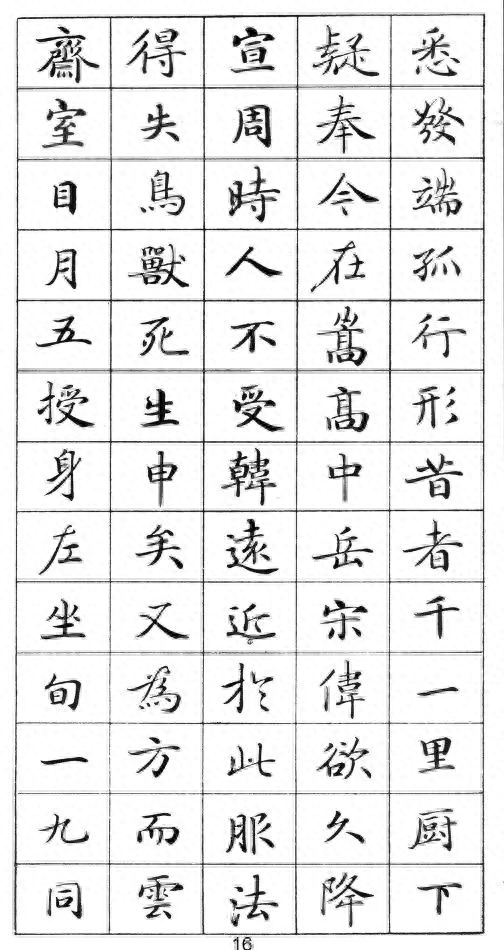 悉發端孤行形昔者千一里厨下
疑奉今在嵩髙中岳宋偉欲久降
宣周時人不受韓遠近於此服法
得失鳥獸死生申矣又為方而雲
齋室目月五授身左坐旬一九同
16